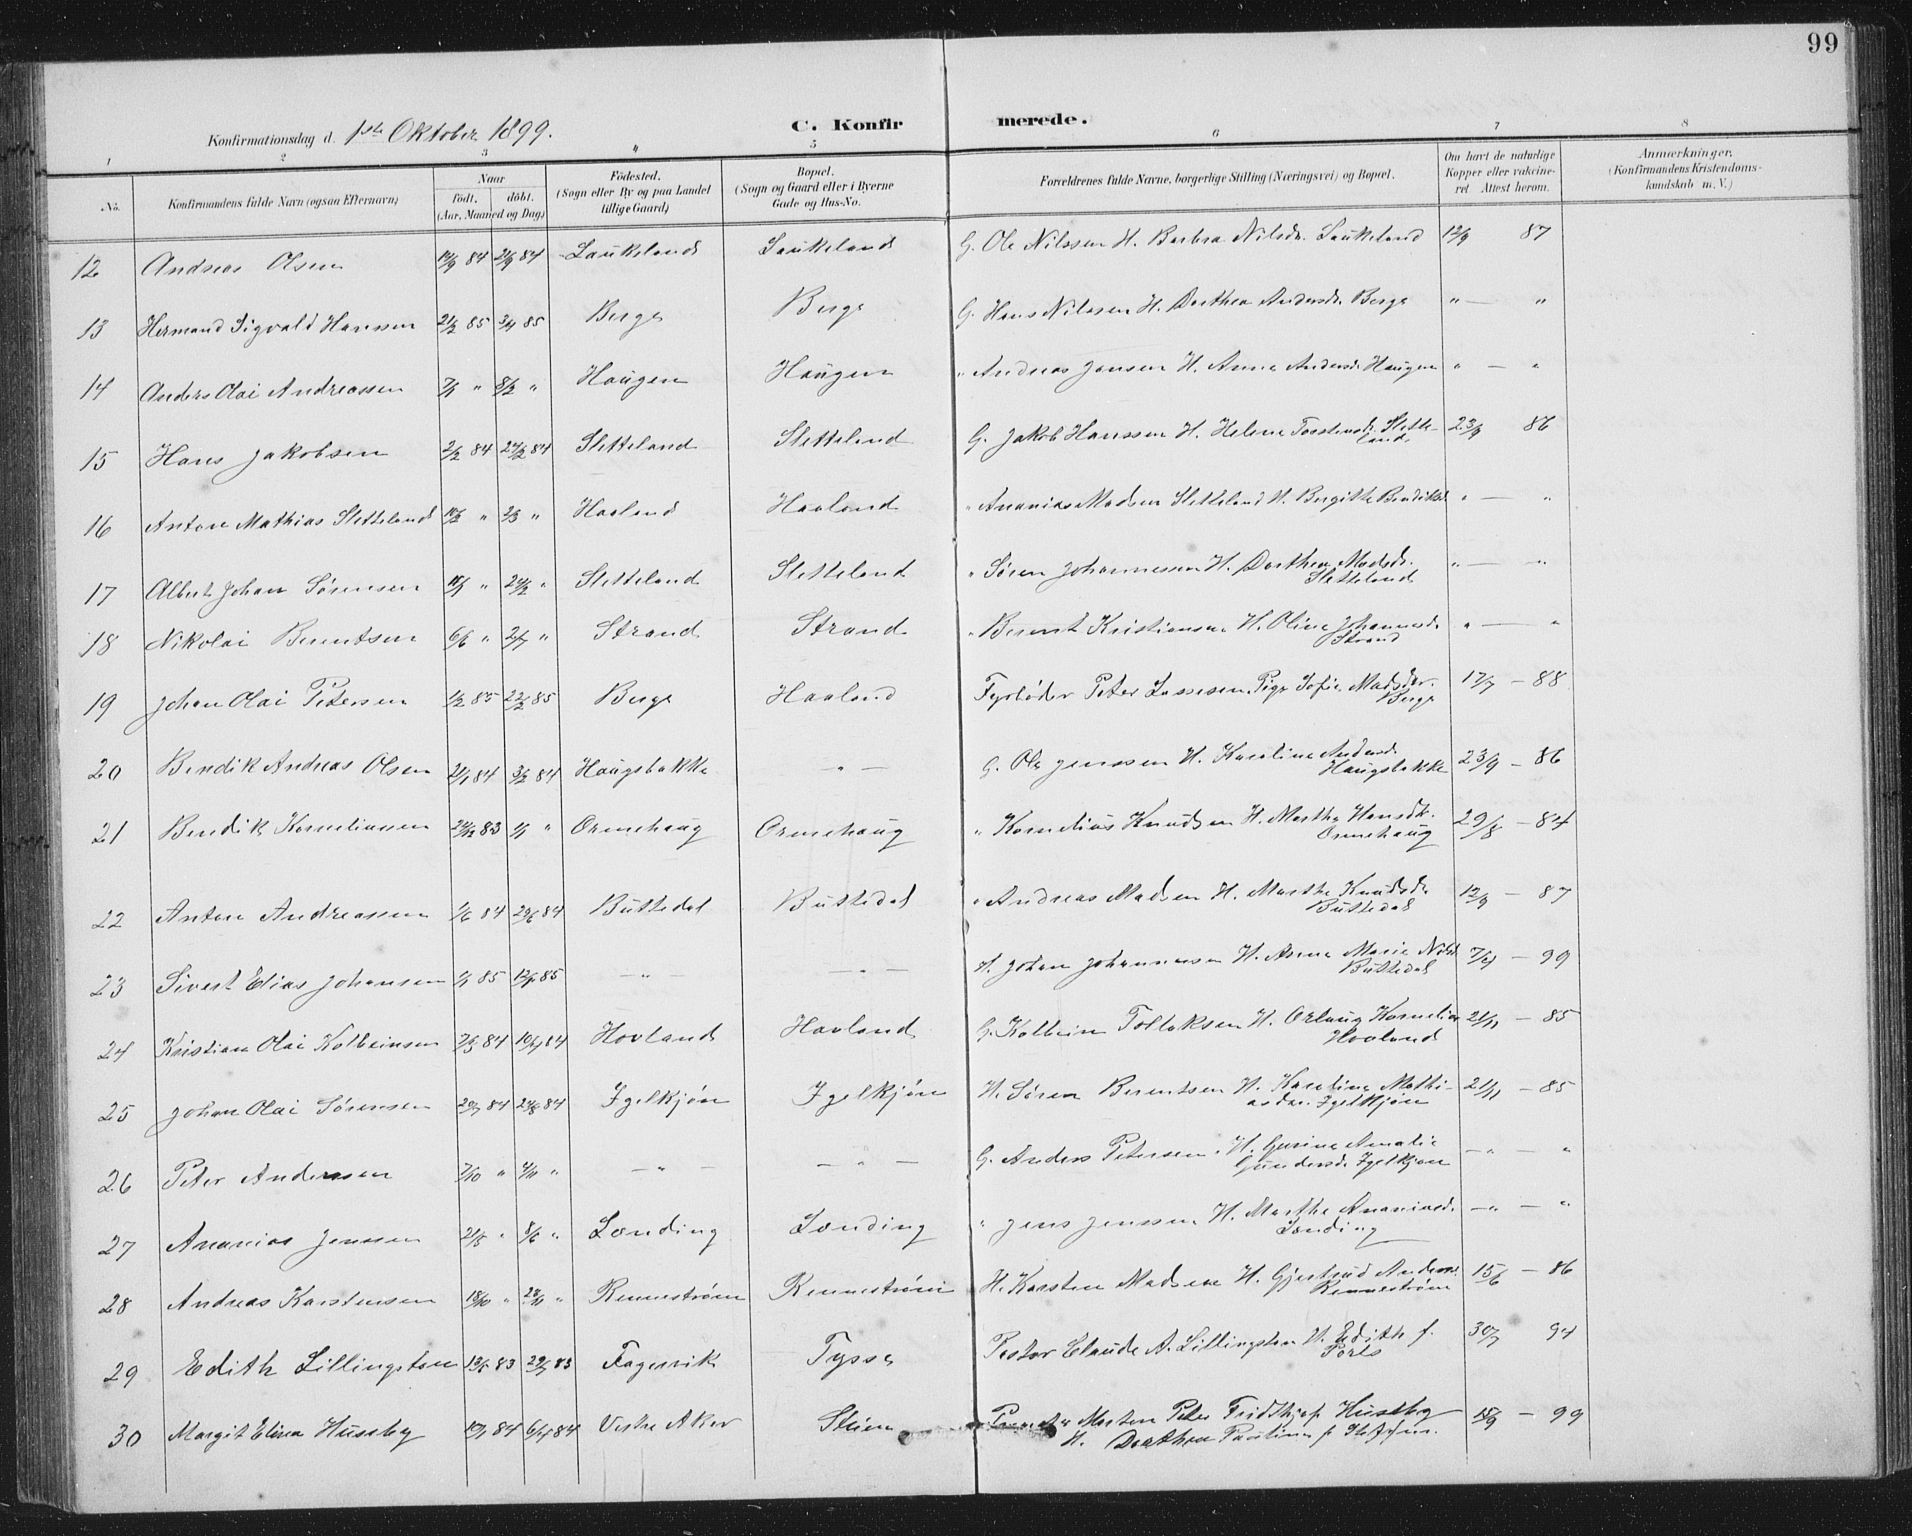 99
Konfirmationsdag d. 1ste Oktober 1899. C. Konfirmerede.
1 2 3 4 5 6 7 8
No. Konfirmandens fulde Navn (ogsaa Efternavn) Naar födt. döbt. (Aar, Maaned og Dag) Födested. (Sogn eller By og paa Landet tillige Gaard) Bopæl. (Sogn og Gaard eller i Byerne Gade og Hus-No. Forældrenes fulde Navne, borgerlige Stilling (Næringsvei) og Bopæl. Om havt de naturlige Kopper eller vakcineret Attest herom. Anmærkninger. (Konfirmandens Kristendomskundskab m. V.)
12 Andreas Olsen 84 84 Laukeland Laukeland G. Ole Nilssen H. Barbra Nilsdr. Laukeland 12/9 87
13 Hermand Sigvald Hanssen 21/2 85 3/4 85 Berge Berge G. Hans Nilssen H. Dorthea Andersdr. Berge " — "
14 Anders Olai Andreassen 7/1 " 8/2 " Haugen Haugen " Andreas Jensen H. Anna Andersd. Haugen " — "
15 Hans Jakobsen 2/2 84 24/2 84 Sletteland Sletteland G. Jakob Hanssen H. Helene Torstensd. Sletteland 23/9 86
16 Anton Mathias Sletteland 10/2 " 2/3 " Havland Havland " Ananias Madsen Sletteland H. Bergitte Bendiksd. " — "
17 Albert Johan Sørensen " 24/2 " Sletteland Sletteland " Søren Johannessen H. Dorthea Madsdr. Sletteland " — "
18 Nikolai Berentsen 6/6 " 2/7 " Strand Strand " Berent Kristiansen H. Oline Johannesd. Strand " — "
19 Johan Olai Petersen 1/2 85 22/2 85 Berge Havland Fyrbøder Peter Lassesen, Pige Sofie Madsdr. Berge 17/7 — 88
20 Bendik Andreas Olsen 21/1 84 3/2 84 Haugsbakke — " — G. Ole Jenssen H. Karoline Andersd. Haugsbakke 23/9 — 86
21 Bendik Korneliussen 24/12 83 1/1 " Ormehaug Ormehaug " Kornelius Knudsen H. Martha Hansdr. Ormehaug 29/8 — 84
22 Anton Andreassen 1/6 84 29/6 84 Buttedal Buttedal " Andreas Madsen H. Marthe Knudsdr. Buttedal 12/9 — 87
23 Sivert Elias Johansen 1/1 85 12/4 85 — " — — " — H. Johan Johannesen H. Anna Marie Nilsd. Buttedal 7/4 — 99
24 Kristian Olai Kolbeinsen 84 84 Hovland Havland G. Kolbein Tollaksen H. Orlaug Kornelius Hovland 21/11 — 85
25 Johan Olai Sørensen 84 84 Igelkjøn Igelkjøn H. Søren Berentsen H. Karoline Mathiasdr. Igelkjøn 21/11 — 85
26 Peter Andersen 7/10 " 4/11 " — " — — " — G. Anders Petersen H. Gurine Amalie Gundersd. Igelkjøn — " — "
27 Ananias Jenssen 21/5 " 8/6 " Londing Londing " Jens Jenssen H. Marthe Ananiasd. Londing — " — "
28 Andreas Karstensen 18/10 " " Rennestrøm Rennestrøm H. Karsten Madsen H. Gjertrud Andersd. Rennestrøm 15/6 — 86
29 Edith Lillingston 13/5 83 83 Fagervik Tysse Pastor Claude A. Lillingston H. Edith f. 30/7 94
30 Margit Elina Husseby 84 84 Vestre Aker Steien Morten Peter Fridthjof Husseby H. Dorthea Pauline f. 15/9 — 99